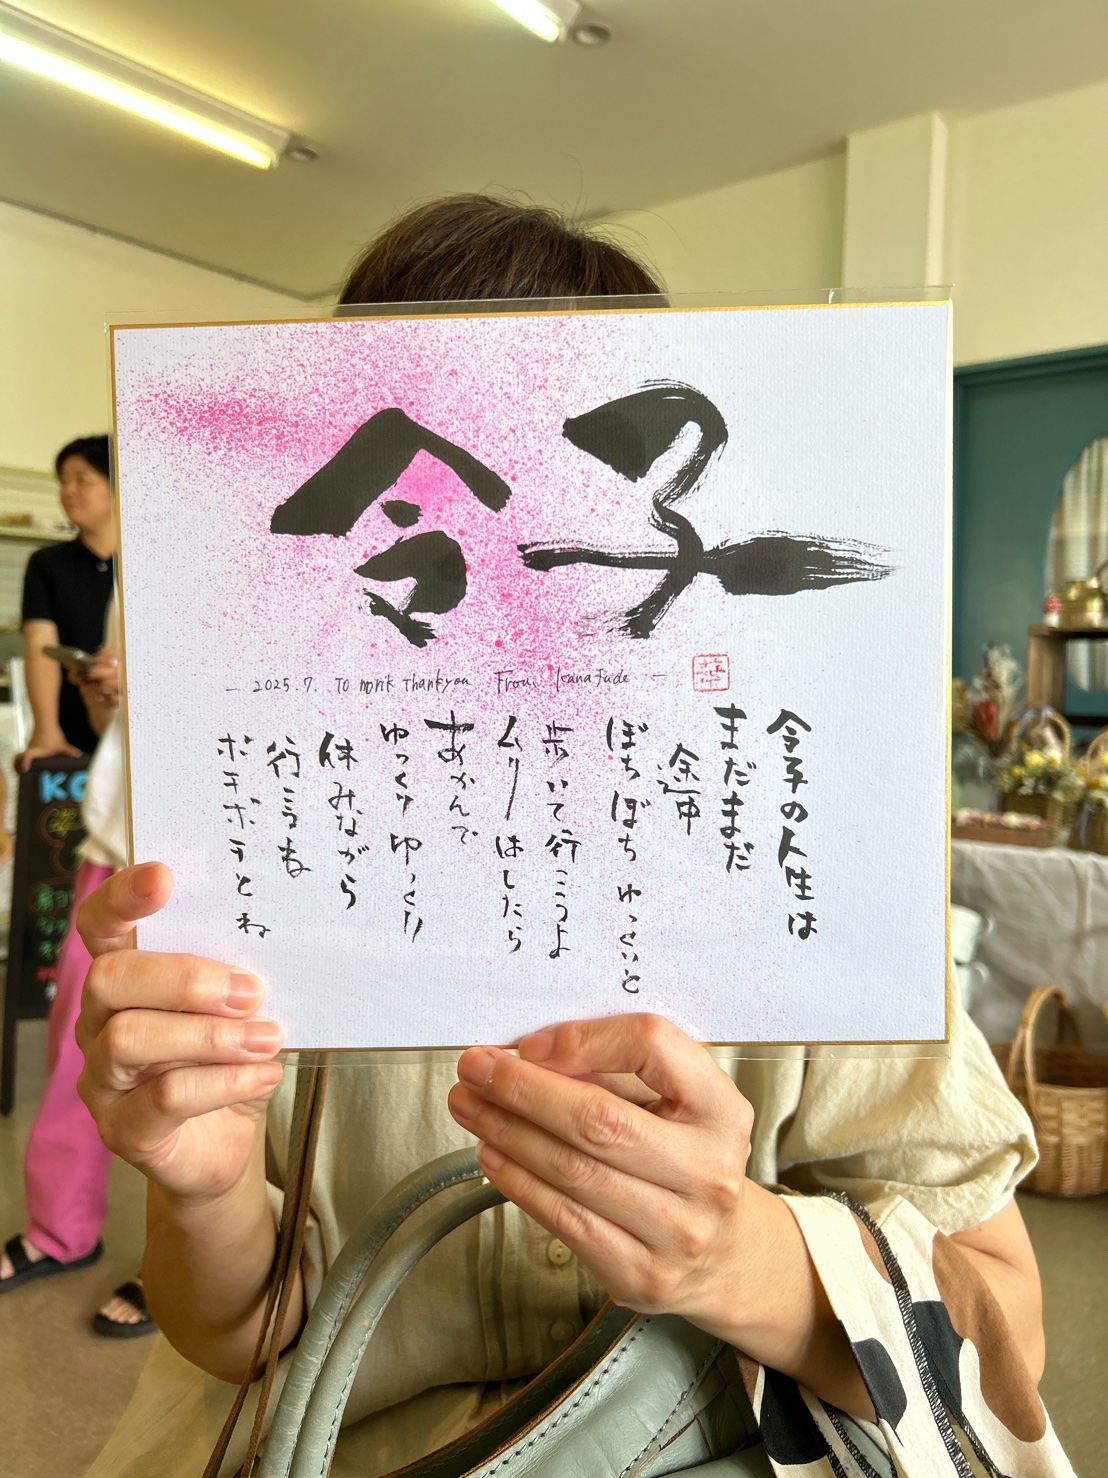 令子
— 2025.7. To norik Thankyou From kanafude —
令子の人生は
まだまだ
途中
ぼちぼちゆっくりと
歩いて行こうよ
ムリはしたら
あかんで
ゆっくりゆっくり
休みながら
行こうね
ボチボチとね
KO